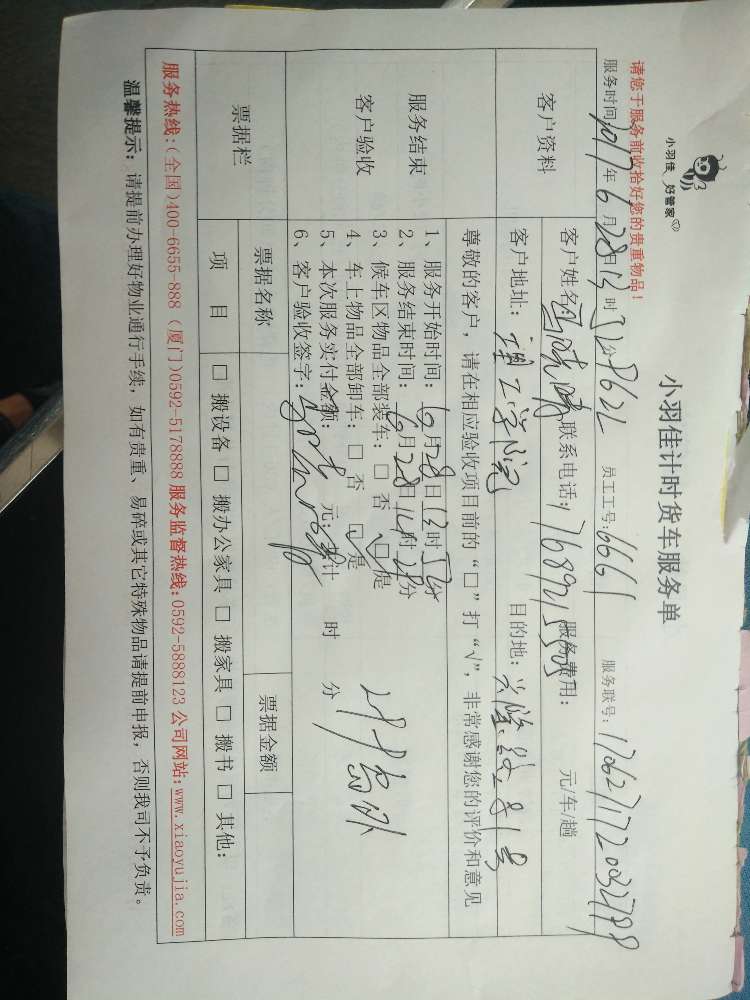 小羽佳 好管家
小羽佳计时货车服务单
请您于服务前收拾好您的贵重物品!
服务时间 2017年6月28日13时 分 员工工号: 6661 服务联号:
客户资料
客户姓名 联系电话: 服务费用: 元/车/趟
客户地址: 理工学院 目的地:
服务结束
客户验收
尊敬的客户,请在相应验收项目前的“□”打“√”,非常感谢您的评价和意见
1、服务开始时间: 6月28日13时 分
2、服务结束时间: 6月28日14时 分
3、候车区物品全部装车: □ 否 □ 是
4、车上物品全部卸车: □ 否 □ 是
5、本次服务实付金额: 元; 共计 时 分
6、客户验收签字:
票据栏
票据名称 票据金额
项 目 □ 搬设备 □ 搬办公家具 □ 搬家具 □ 搬书 □ 其他:
服务热线:(全国)400-6655-888 (厦门)0592-5178888 服务监督热线:0592-5888123 公司网站:www.xiaoyujia.com
温馨提示: 请提前办理好物业通行手续,如有贵重、易碎或其它特殊物品请提前申报,否则我司不予负责。